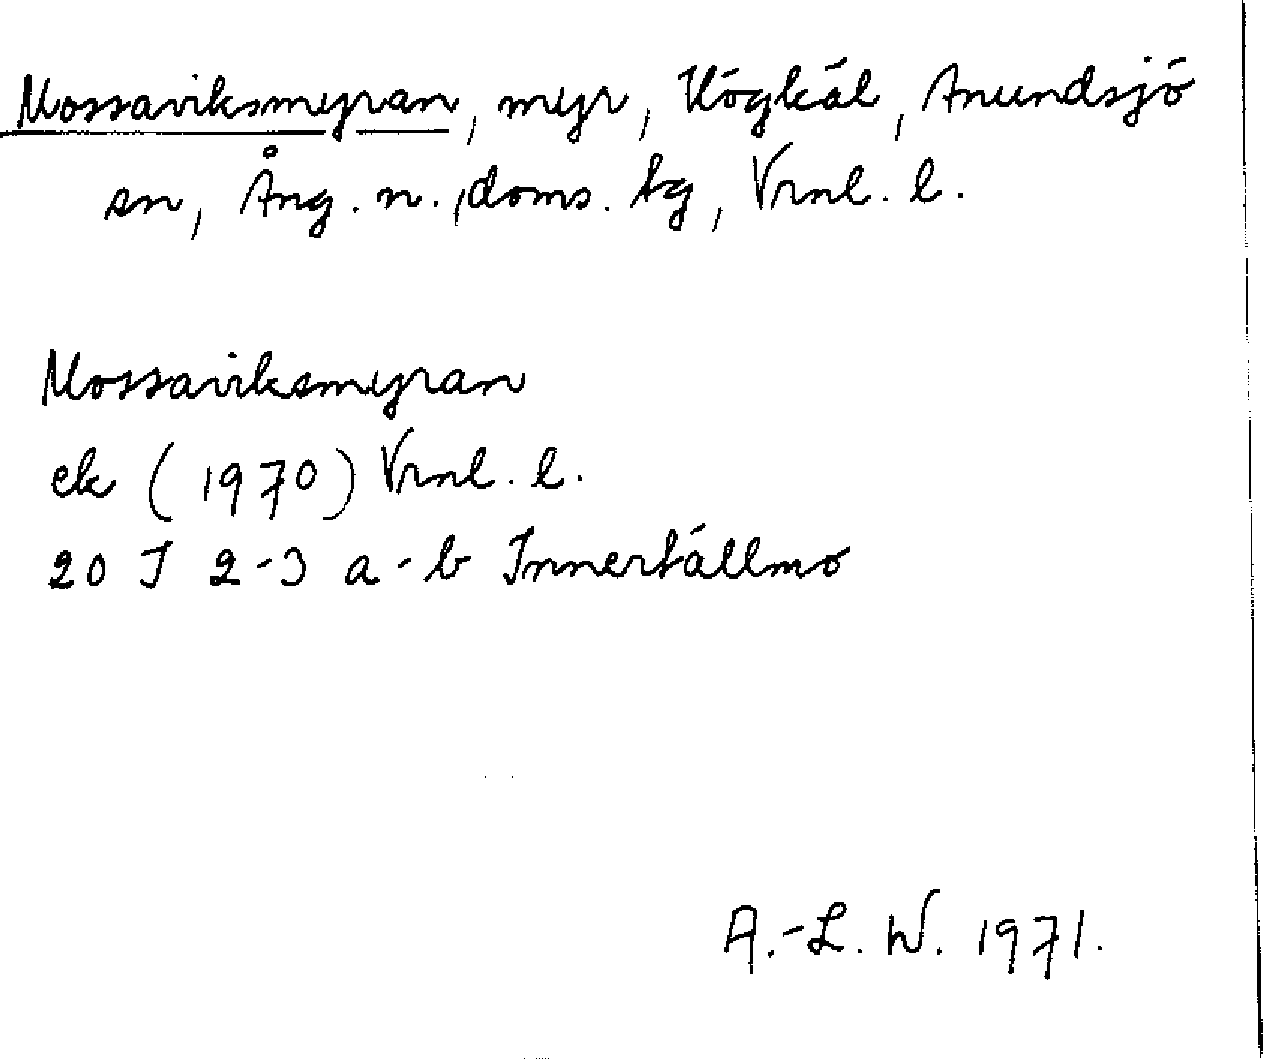 Mossaviksmyran, myr, Högkål, Anundsjö
sn, Ång. n. doms. tg, Vrnl. l.
Mossaviksmyran
ek (1970) Vrnl. l.
20 J 2-3 a-b Innertällmo
A.-L. W. 1971.